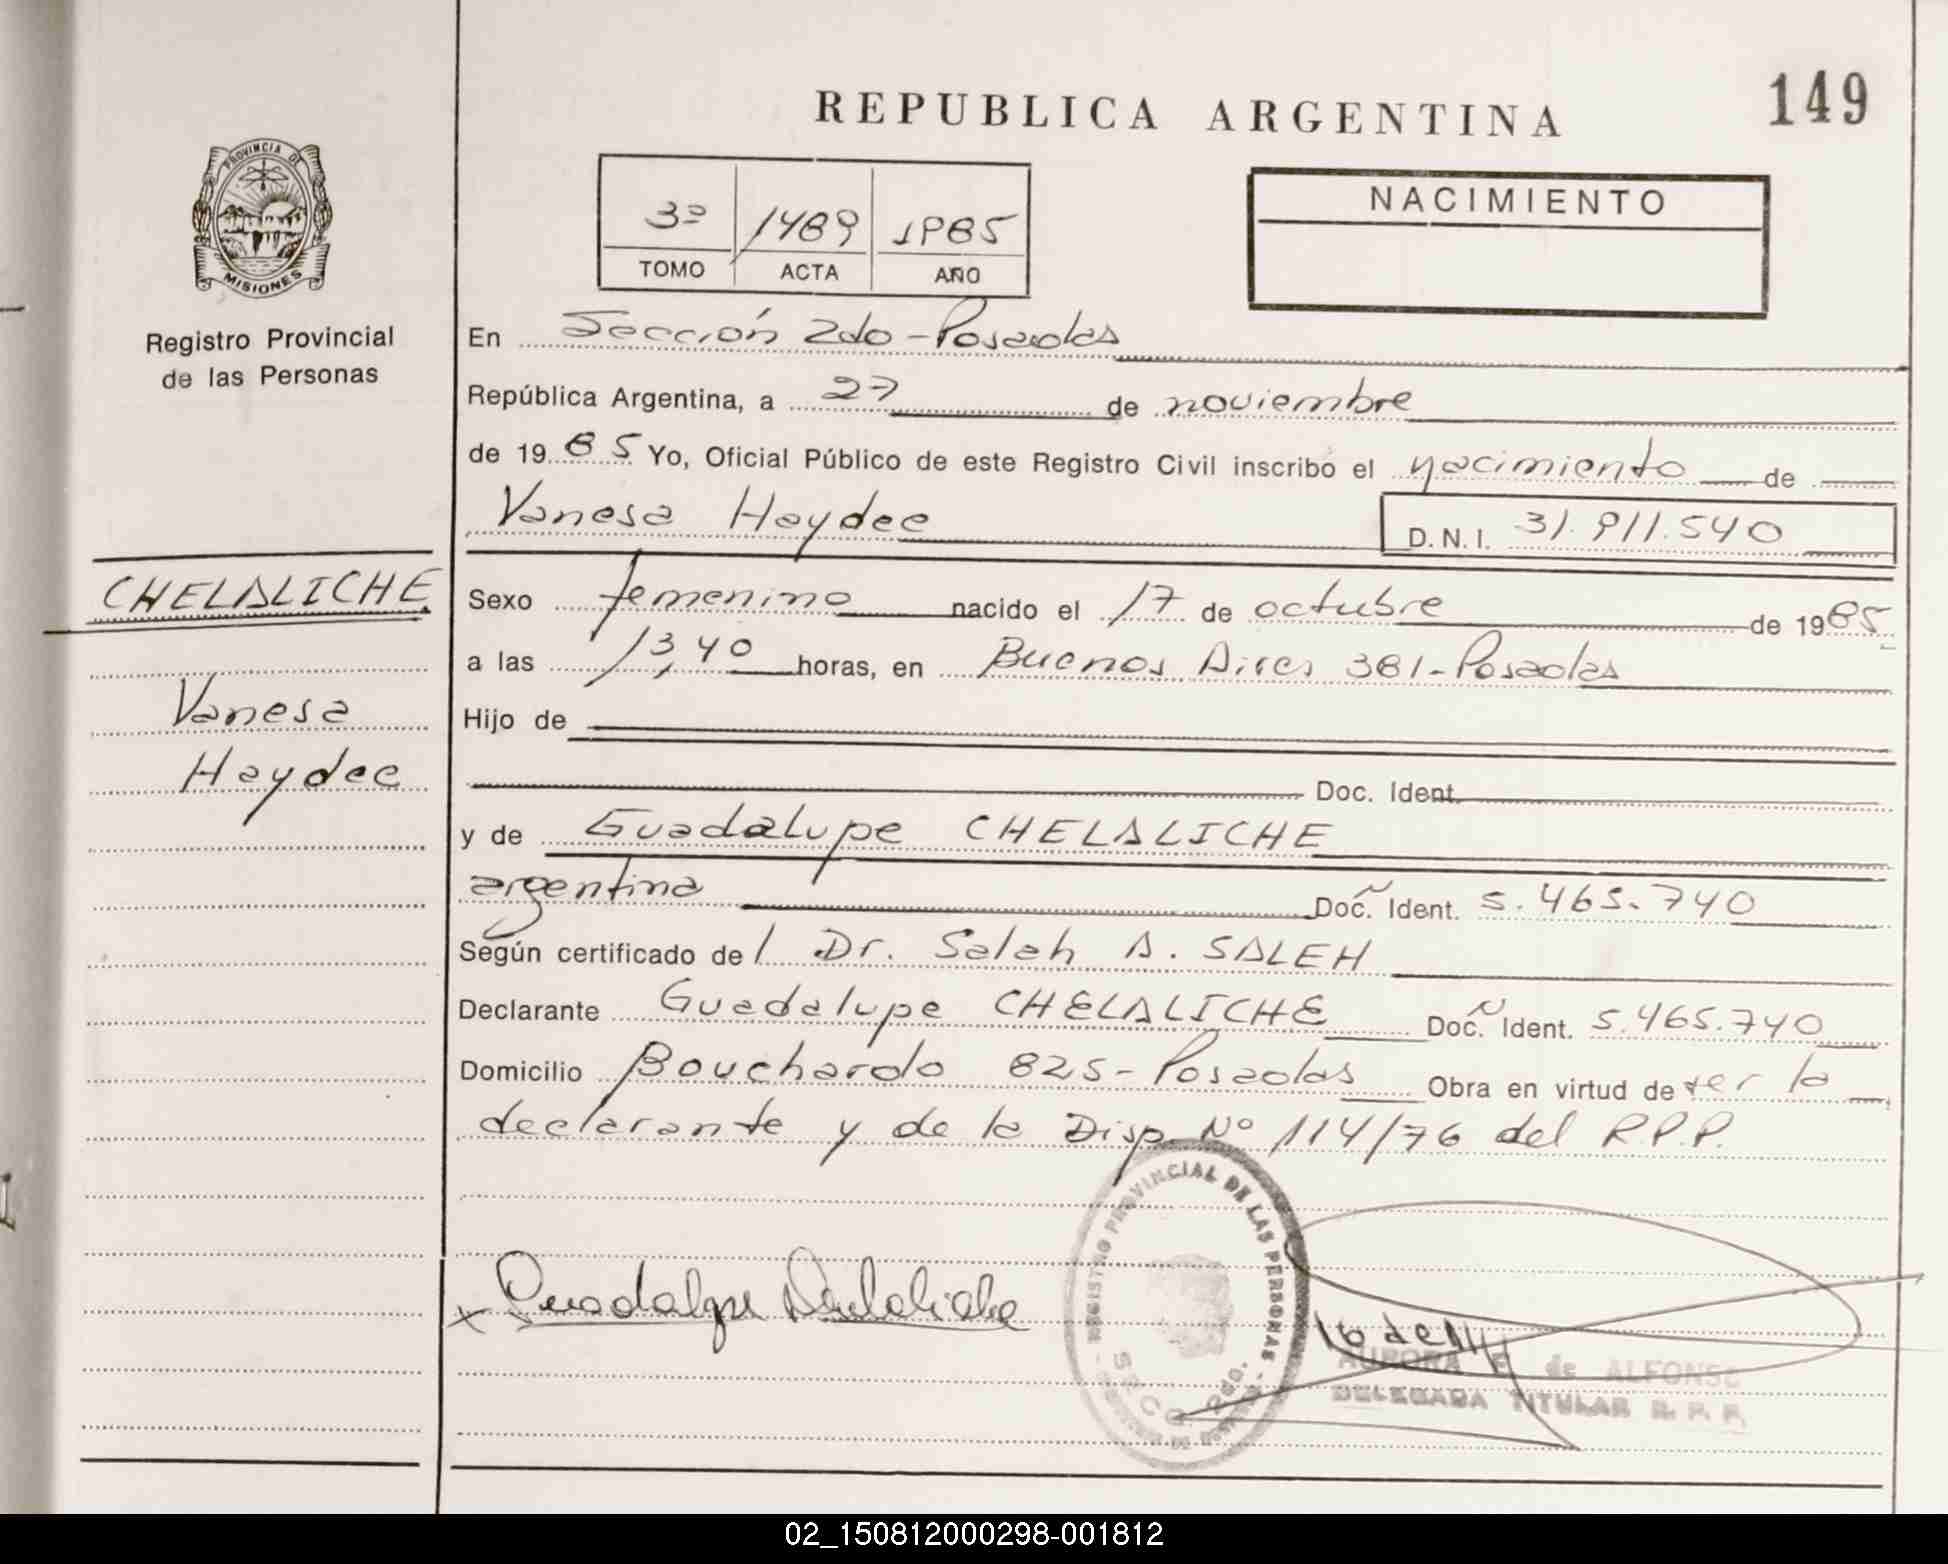 REPUBLICA ARGENTINA
149
PROVINCIA DE
MISIONES
Registro Provincial
de las Personas
3º 1489 1985
TOMO ACTA AÑO
NACIMIENTO
En Sección 2da - Posadas
República Argentina, a 27 de noviembre
de 1985 Yo, Oficial Público de este Registro Civil inscribo el nacimiento de
Vanesa Haydee D. N. I. 31.911.540
CHELALICHE
Vanesa
Haydee
Sexo femenino nacido el 17 de octubre de 1985
a las 13,40 horas, en Buenos Aires 381 - Posadas
Hijo de
Doc. Ident.
y de Guadalupe CHELALICHE
argentina Doc. Ident. 5.465.740
Según certificado de l Dr. Saleh A. SALEH
Declarante Guadalupe CHELALICHE Doc. Ident. 5.465.740
Domicilio Bouchardo 825 - Posadas Obra en virtud de ser la
declarante y de la Disp. Nº 114/76 del R.P.P.
REGISTRO PROVINCIAL DE LAS PERSONAS
SECC. 2da.
x Guadalupe Chelaliche
AURORA E. de ALFONSO
DELEGADA TITULAR R. P. P.
02_150812000298-001812